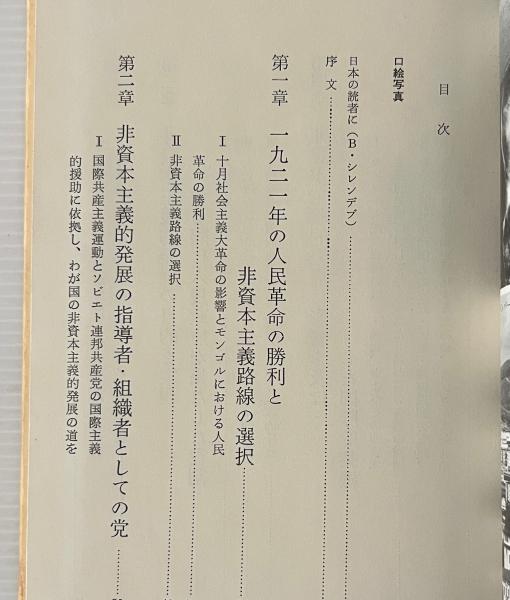 目次
口絵写真
日本の読者に（B・シレンデブ）
序文
第一章　一九二一年の人民革命の勝利と
非資本主義路線の選択
I　十月社会主義大革命の影響とモンゴルにおける人民
革命の勝利
II　非資本主義路線の選択
第二章　非資本主義的発展の指導者・組織者としての党
I　国際共産主義運動とソビエト連邦共産党の国際主義
的援助に依拠し、わが国の非資本主義的発展の道を